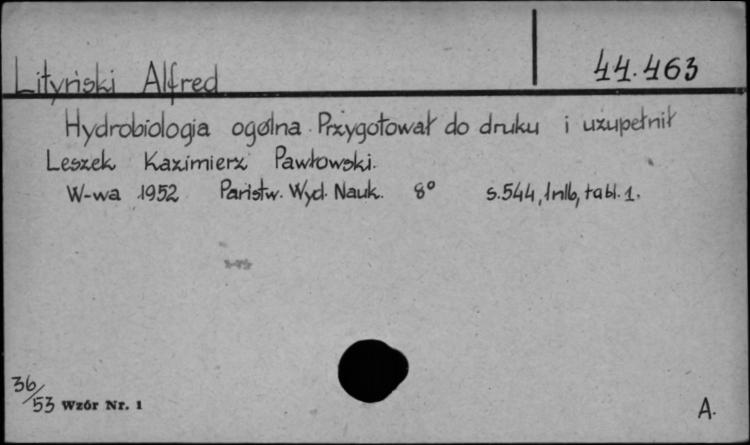 Lityński Alfred 44.463
Hydrobiologia ogólna. Przygotował do druku i uzupełnił
Leszek Kazimierz Pawłowski.
W-wa 1952 Państw. Wyd. Nauk. 8° s.544, 1nlb, tabl. 1.
36/53 Wzór Nr. 1 A.